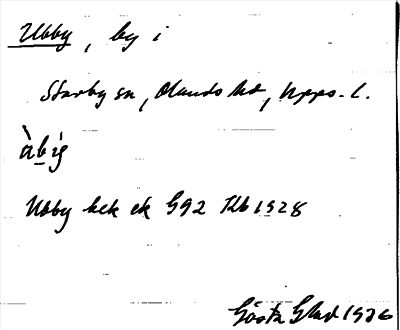 Ubby, by i
Starby sn, Olands hd, Upps. l.
àbi̇̀g
Ubby bek ek G92 Hb 1928
Gösta Glad 1926